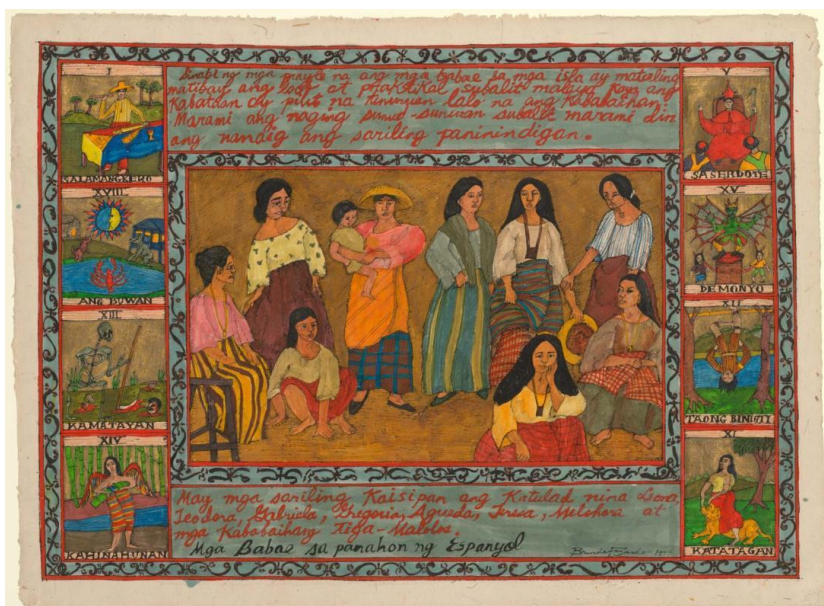 I
SALAMANGKERO
XVIII
ANG BUWAN
XIII
KAMATAYAN
XIV
KAHINAHUNAN
Sinabi ng mga prayle na ang mga babae sa mga isla ay matalino
matibay ang loob at praktikal subalit malaya kaya ang
kabataan ay pilit na kinunyan lalo na ang kababaihan.
Marami ang naging sunud-sunuran subalit marami din
ang nanaig ang sariling paninindigan.
May mga sariling kaisipan ang katulad nina Leona,
Teodora, Gabriela, Gregoria, Agueda, Teresa, Melchora at
mga kababaihang Tiga-Malolos.
Mga Babae sa panahon ng Espanyol
V
SASERDOTE
XV
DEMONYO
XII
TAONG BINIGTI
XI
KATATAGAN